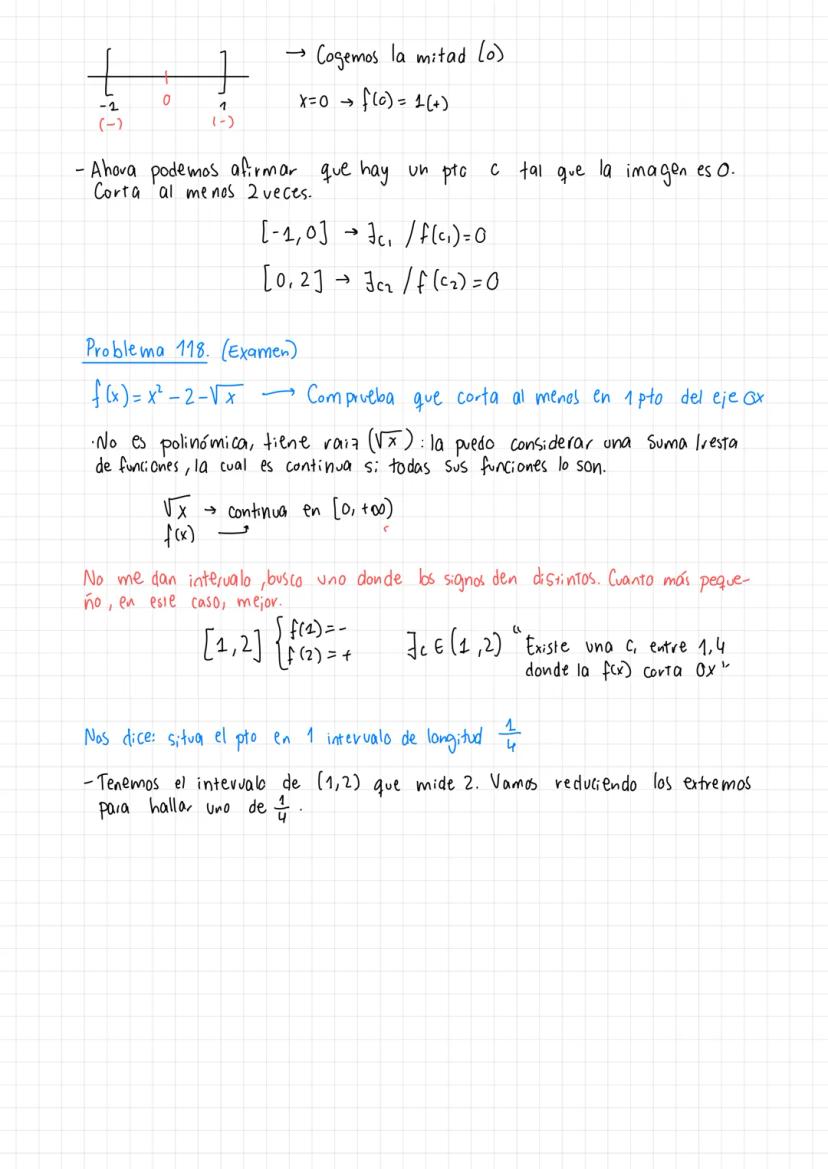 → Cogemos la mitad (0)
-1 0 1
(-) (-)
x=0 → f(0) = 1(+)
- Ahora podemos afirmar que hay un pto c tal que la imagen es 0.
Corta al menos 2 veces.
[-1,0] → ∃c₁ / f(c₁)=0
[0,2] → ∃c₂ / f(c₂)=0
Problema 118. (Examen)
f(x) = x² - 2 - √x → Comprueba que corta al menos en 1 pto del eje Ox
·No es polinómica, tiene raiz (√x) : la puedo considerar una suma/resta
de funciones, la cual es continua si todas sus funciones lo son.
√x → continua en [0, +∞)
f(x)
No me dan intervalo, busco uno donde los signos den distintos. Cuanto más peque-
ño, en este caso, mejor.
[1,2] { f(1) = -
f(2) = +
∃c ∈ (1,2) "Existe una c, entre 1,4
donde la f(x) corta Ox"
Nos dice: situa el pto en 1 intervalo de longitud 1/4
- Tenemos el intervalo de (1,2) que mide 2. Vamos reduciendo los extremos
para hallar uno de 1/4.